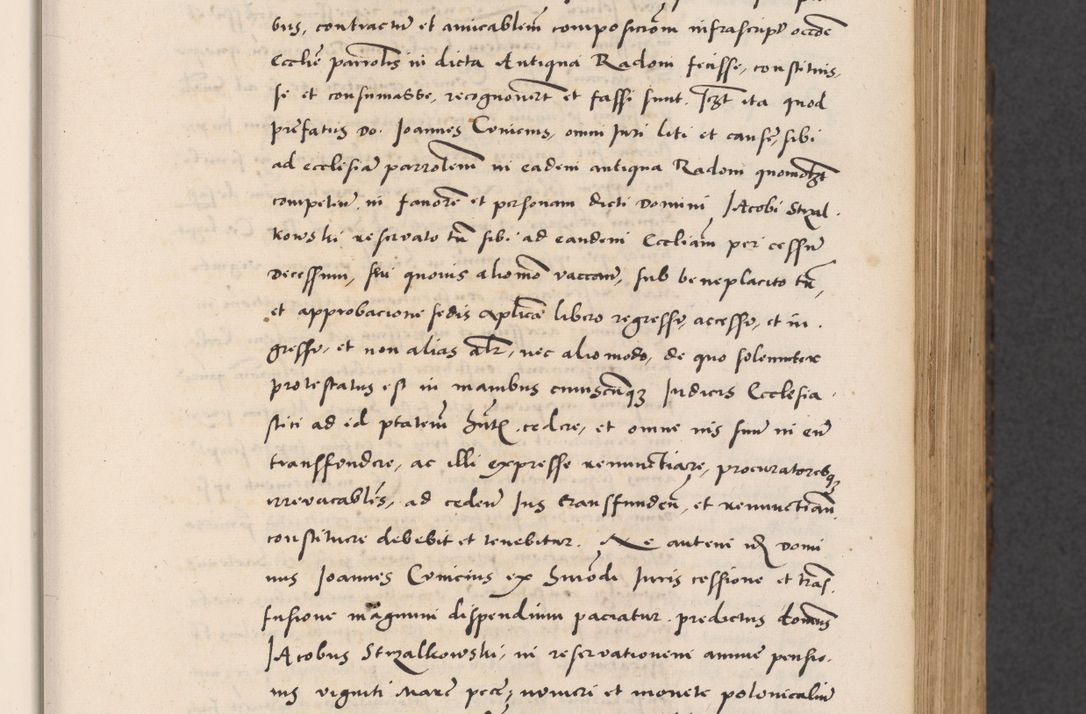 bus, contractum et amicablem composicionem infrascript occõe
Ecclie parrolis in dicta Antiqua Radom fecisse, constituis,
se et consumasse, recognouert et fassi sunt. Ita quod
prefatus Do. Joannes Conicius, omni Juri liti et cause, sibi
ad ecclesiã parrolem in eadem antiqua Radom quomolzt
competeñ in fauorẽ et personam dicti Domini JAcobi Strzal.
kowski reseruato tñ sibi ad eandem Eccliam per cessũ
Decessum, seu quouis aliomõ vaccañ, sub beneplacito tñ,
et approbacione sedis aplicẽ libero regressu, accessu, et in.
gressu, et non alias alr, nec aliomodo, de quo solemniter
protestatus est in manibus cuiuscũq3 Judicis Ecclesia.
stici ad id ptatem hñtis cedere, et omne ius suũ in eũ
transfundere, ac illi expresse renunctiare, procuratoresq3
irreuocabiles, ad cedeñ Jus transfundeñ, et renunctiañ
constituere debebit et tenebitur. Ne autem idẽ Domi
nus Joannes Conicius ex hmõdi Juris cessione et trãs.
fusione magnum dispendium paciatur. predictus dominus
JAcobus Strzalkowski, in reseruationem annuẽ pensio.
nis viginti Marẽ pecẽ, numeri et monete polonicaliũ